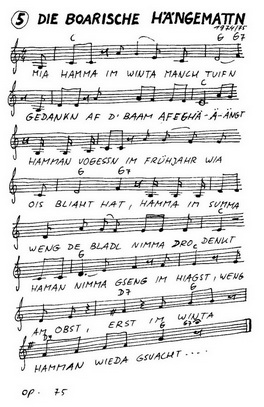 ⑤ DIE BOARISCHE HÄNGEMATTN
1974/75
C G G7
MIA HAMMA IM WINTA MANCH TUIFN
GEDANKN AF D' BAAM AFEGHÄ-Ä-ÄNGT
C
HAMMAN VOGESSN IM FRÜHJAHR WIA
G G7
OIS BLIAHT HAT, HAMMA IM SUMMA
C
WENG DE BLADL NIMMA DRO DENKT
G C
HAMAN NIMMA GSENG IM HIAGST, WENG
D7 G
AM OBST, ERST IM WINTA
G
HAMMAN WIEDA GSUACHT....
OP. 75